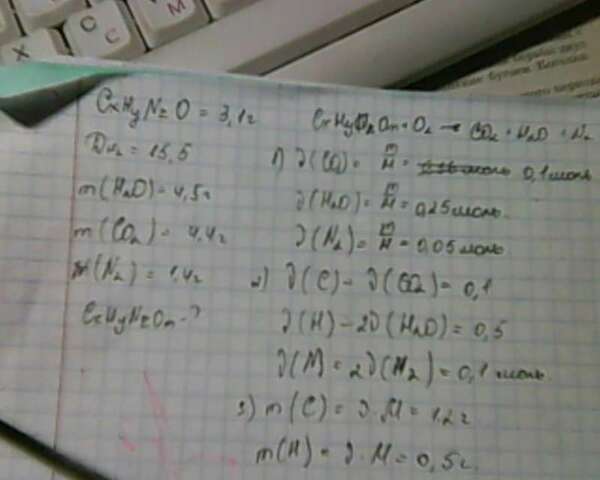 CxHyNzO = 3,1г
DH₂ = 15,5
m(H₂O) = 4,5г
m(CO₂) = 4,4г
(N₂) = 1,4г
CxHyNzOm - ?
+ O₂ → CO₂ + H₂O + N₂
1) ν(CO₂) = m/M = 0,1 моль
ν(H₂O) = m/M = 0,25 моль.
ν(N₂) = m/M = 0,05 моль
2) ν(C) - ν(CO₂) = 0,1
ν(H) - 2ν(H₂O) = 0,5
ν(N) = 2ν(N₂) = 0,1 моль.
3) m(C) = ν·M = 1,2г
m(H) = ν·M = 0,5г.
Х
С
М